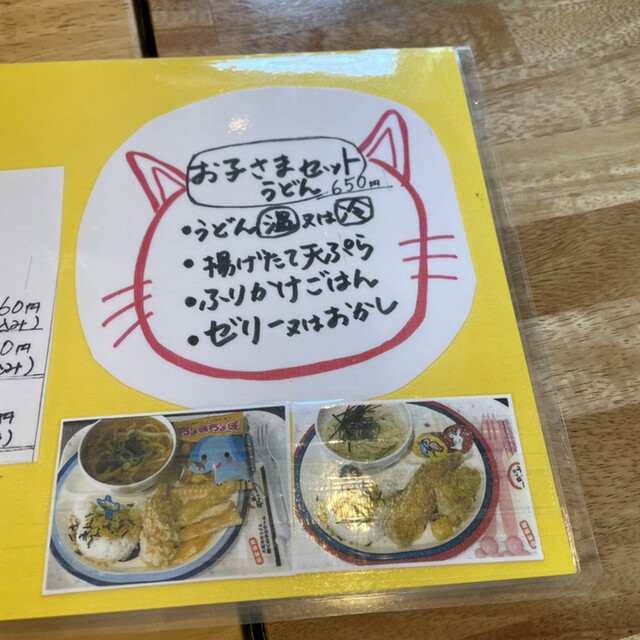 お子さまセット
うどん 650円
・うどん 温 又は 冷
・揚げたて天ぷら
・ふりかけごはん
・ゼリー又はおかし
60円
込み)
0円
込み)
円
)